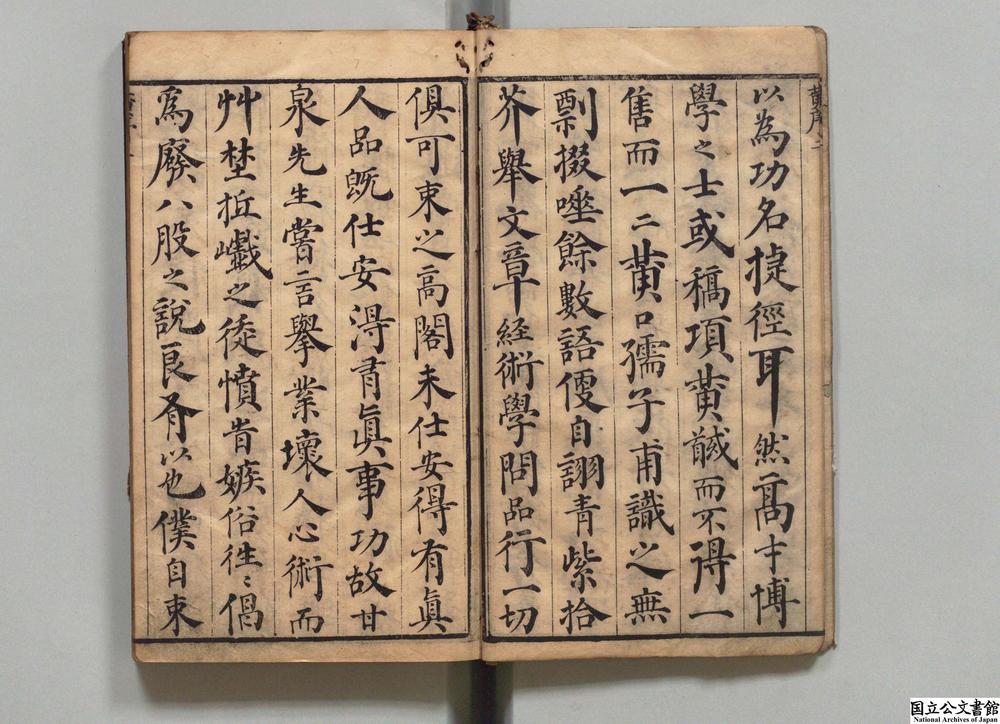 以為功名捷徑耳然高才博
學之士或稿項黃馘而不得一
售而一二黃口孺子甫識之無
剽掇唾餘數語便自詡青紫拾
芥舉文章經術學問品行一切
俱可束之高閣未仕安得有眞
人品既仕安淂有眞事功故甘
泉先生嘗言舉業壞人心術而
艸埜抵巇之徒憤時嫉俗徃〻倡
爲廢八股之說良有以也僕自束
国立公文書館
National Archives of Japan